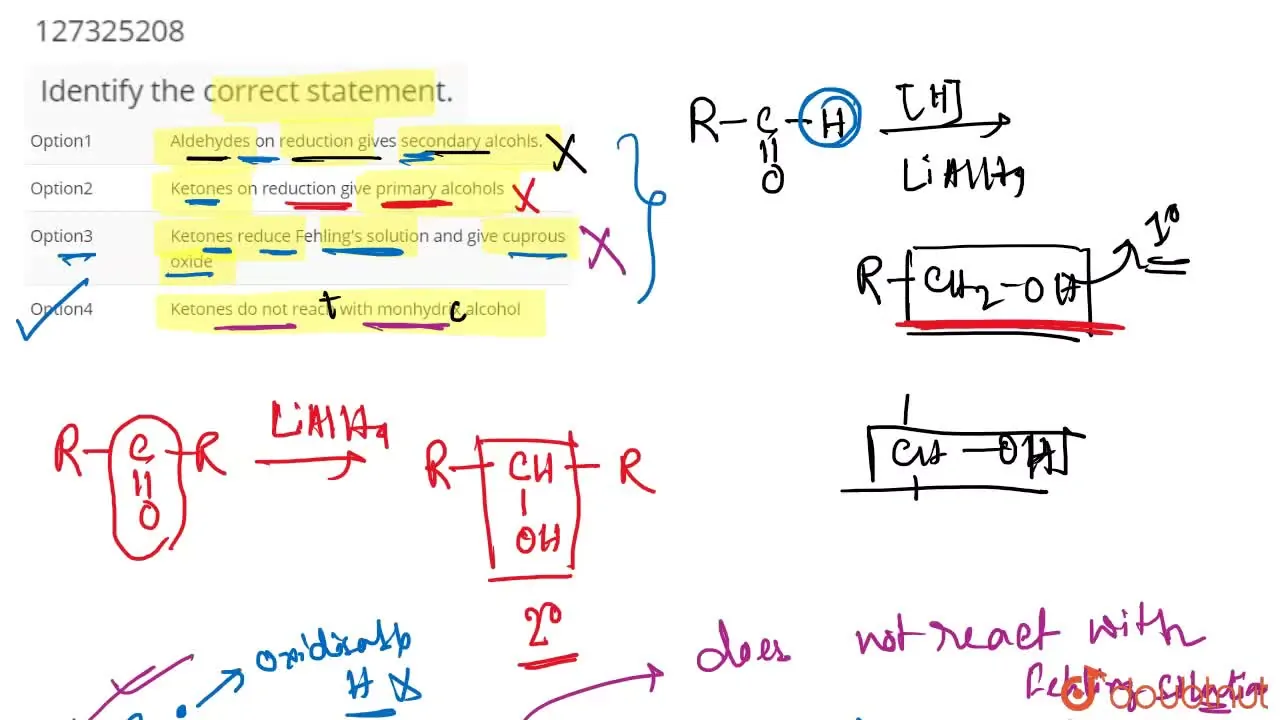 127325208
Identify the correct statement.
Option1 Aldehydes on reduction gives secondary alcohls. X
Option2 Ketones on reduction give primary alcohols X
Option3 Ketones reduce Fehling's solution and give cuprous X
oxide
Option4 Ketones do not reach with monhydrix alcohol
t
c
R-C-H [H]
O LiAlH4
R-CH2-OH 1°
CH-OH
R-C-R LiAlH4 R-CH-R
O OH
2°
oxidisable
H X
does not react with
Fehling solution
doubtnut